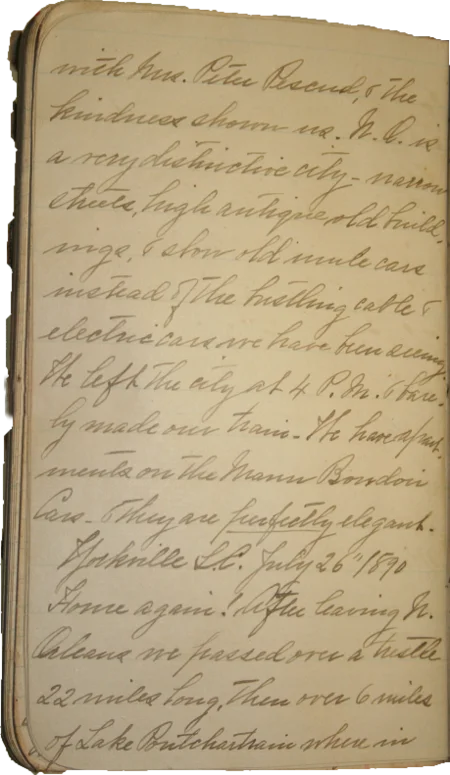 with Mrs. Peter Pescud, & the
kindness shown us. N. O. is
a very distinctive city - narrow
streets, high antique, old build-
ings, & slow old mule cars
instead of the bustling cable &
electric cars we have been seeing.
We left the city at 4 P.M. & bare-
ly made our train - We have apart-
ments on the Mann Bowdoin
Cars - & they are perfectly elegant.
Yorkville S.C. July 26" 1890
Home again! After leaving N.
Orleans we passed over a trestle
22 miles long, then over 6 miles
of Lake Pontchartrain where in